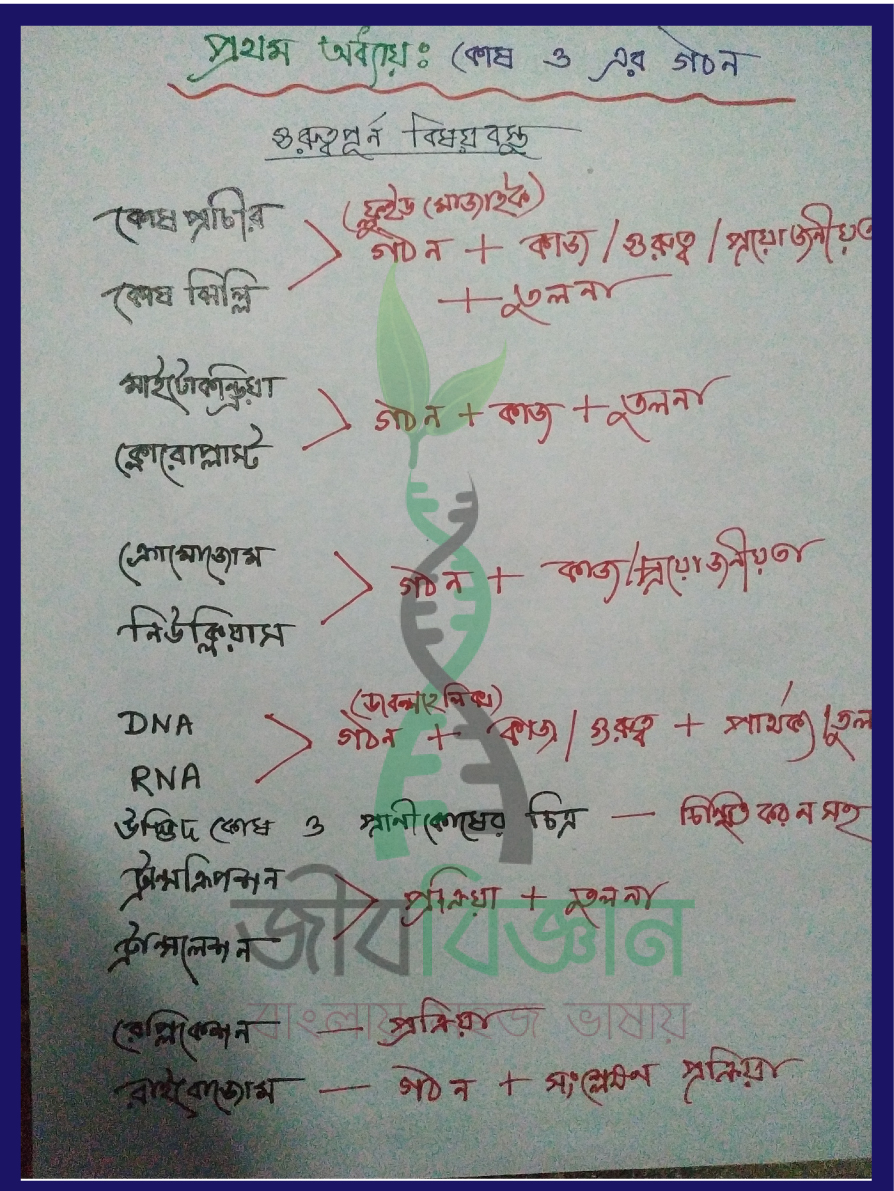 প্রথম অধ্যায়ঃ কোষ ও এর গঠন
গুরুত্বপূর্ন বিষয়বস্তু
কোষ প্রাচীর
(ফ্লুইড মোজাইক)
গঠন + কাজ / গুরুত্ব / প্রয়োজনীয়ত
কোষ ঝিল্লি
+ তুলনা
মাইটোকন্ড্রিয়া
গঠন + কাজ + তুলনা
ক্লোরোপ্লাস্ট
ক্রোমোজোম
গঠন + কাজ/প্রয়োজনীয়তা
নিউক্লিয়াস
(ডাবল হেলিক্স)
DNA
গঠন + কাজ / গুরুত্ব + পার্থক্য/তুল
RNA
উদ্ভিদ কোষ ও প্রানীকোষের চিত্র — চিহ্নিত করন সহ
ট্রান্সক্রিপশন
প্রক্রিয়া + তুলনা
জীববিজ্ঞান
ট্রান্সলেশন
বাংলায় সহজ ভাষায়
রেপ্লিকেশন — প্রক্রিয়া
রাইবোজোম — গঠন + সংশ্লেষন প্রক্রিয়া